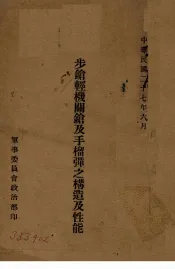 中華民國二十七年六月
步鎗輕機關鎗及手榴彈之構造及性能
軍事委員會政治部印